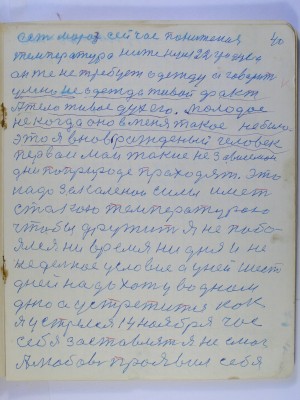 40
есть мороз сейчас понижения
температура ниже нуля 22 градуса
он же не требует одежду а говорит
умело не одежда живой факт
А тело живое духого. Молодое
не когда оно в меня такое небыло
это я вновь рожденый человек
первой май такие не зависимой
дни по природе проходят. Это
надо закаленой силы имет
с такою температурою
чтобы дружит я не побо
ялся ни время ни дня и не
неделное условие а у ней шест
дней надо хоту водном
дню а устретится как
я устрелся 14 ноября час
себя заставлят я не смог
А любов проявил себя